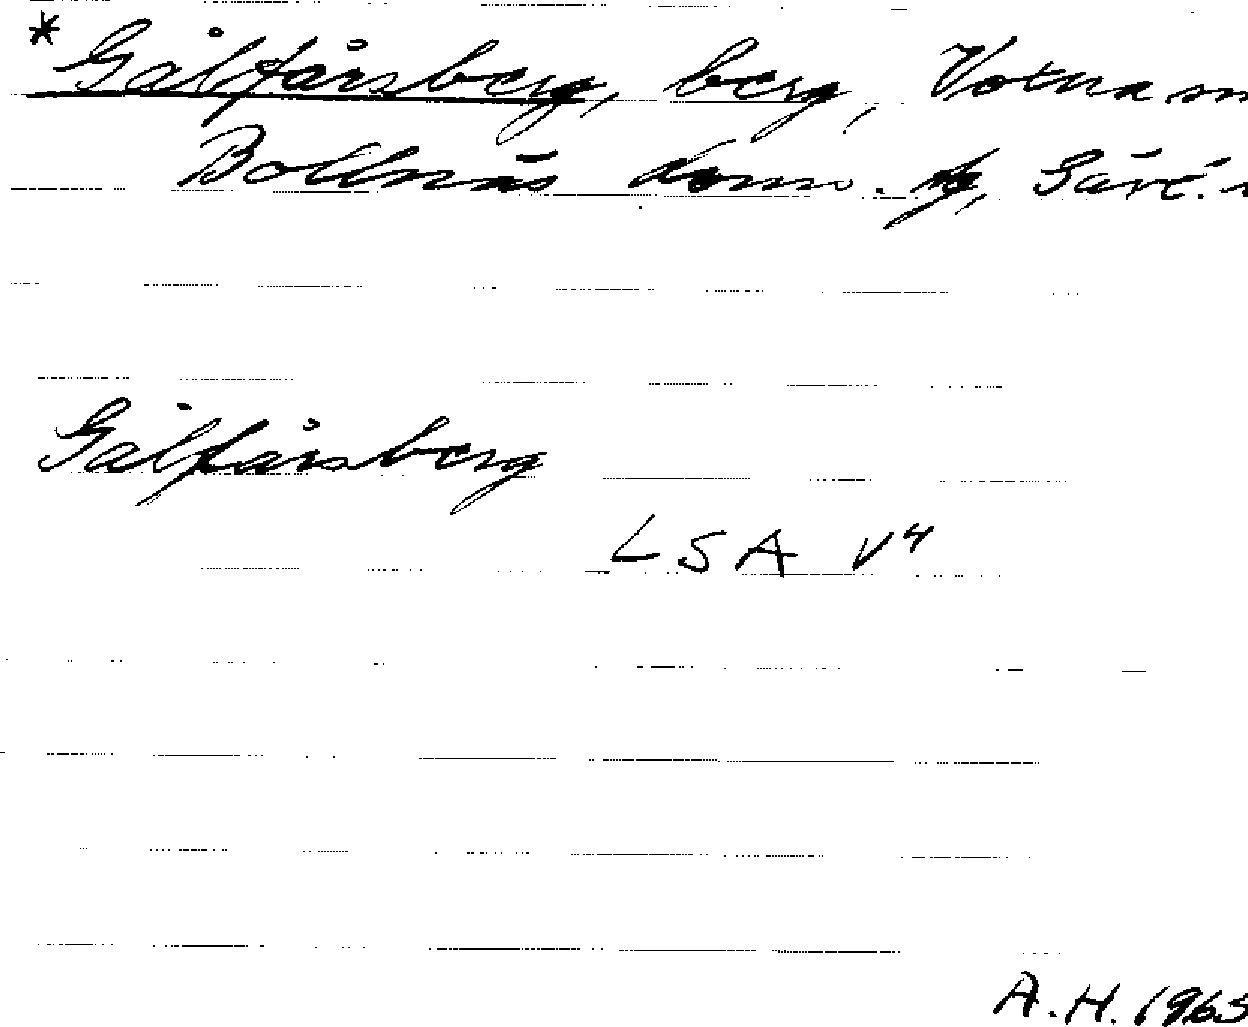 * Gålfårsberg, berg, Votna
Bollnäs komm., Gävl.
Gålfårsberg
LSA V4
A.H. 1965